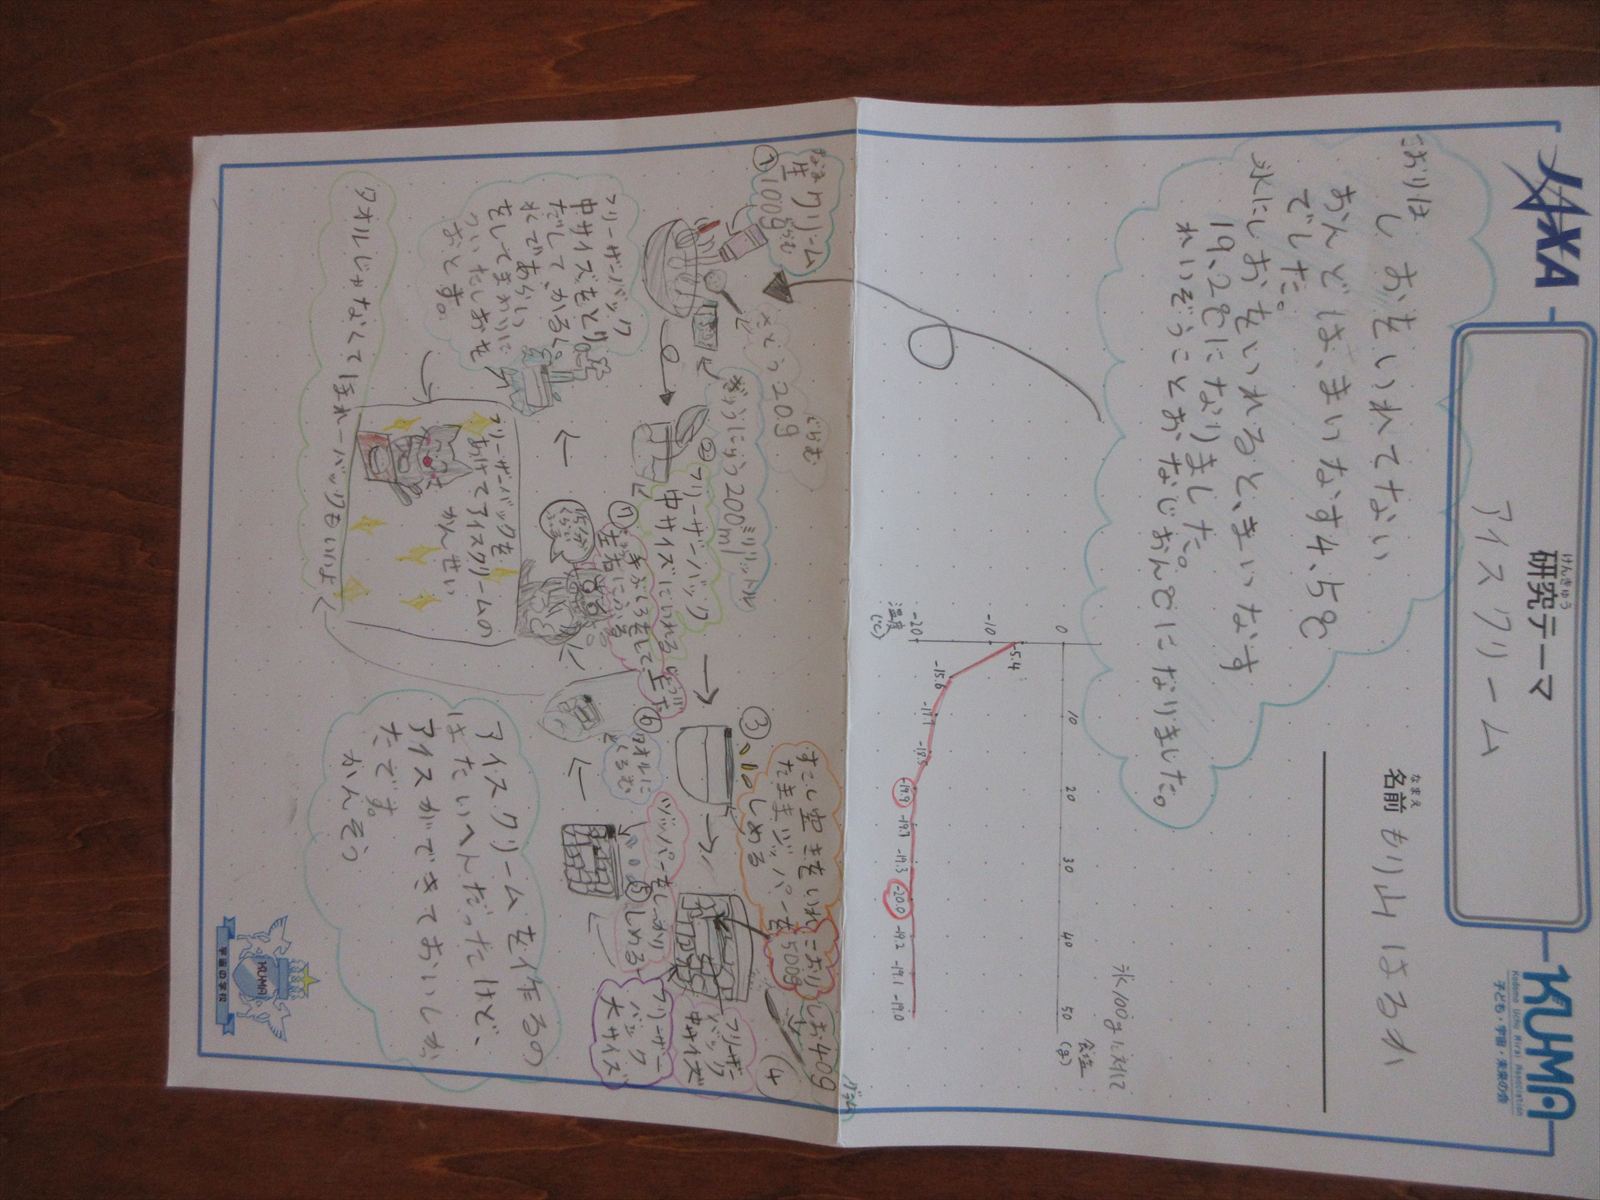 JAXA
けんきゅう
研究テーマ
アイスクリーム
KUMA
Kodomo Uchu Mirai Association
子ども・宇宙・未来の会
なまえ
名前 もり山 はるか
こおりは
しおをいれてない
おんどは、まいなす4,5℃
でした。
氷にしおをいれると、まいなす
19,2℃になりました。
れいぞうことおなじおん℃になりました。
氷100gに対して
食塩
(g)
0
10
20
30
40
50
0
-10
-20
温度
(℃)
-5.4
-15.6
-17.1
-18.5
-19.9
-19.7
-19.3
-20.0
-19.2
-19.1
-19.0
①
なま
生クリーム
100g
ぐらむ
さとう20g
ぐらむ
ぎゅうにゅう200ml
ミリリットル
②
フリーザーバック
中サイズにいれる
③
すこし空きをいれ
たままジッパーを
しめる
(4)
こおり
500g
しお40g
グラム
フリーザー
バック
中サイズ
フリーザー
バック
大サイズ
⑤
ジッパーをしっかり
しめる
⑥
タオルに
くるむ
⑦
左右にふる
15分
ぐらい
フリーザーバック
中サイズをとり
だして、かるく
水であらい
をしてまわりに
ついたしおを
おとす。
フリーザーバックを
あけてアイスクリームの
かんせい
タオルじゃなくてほれーバックもいいよ
アイスクリームを作るの
はたいへんだったけど、
アイスができておいしか
たです。
かんそう
KUMA
宇宙の学校